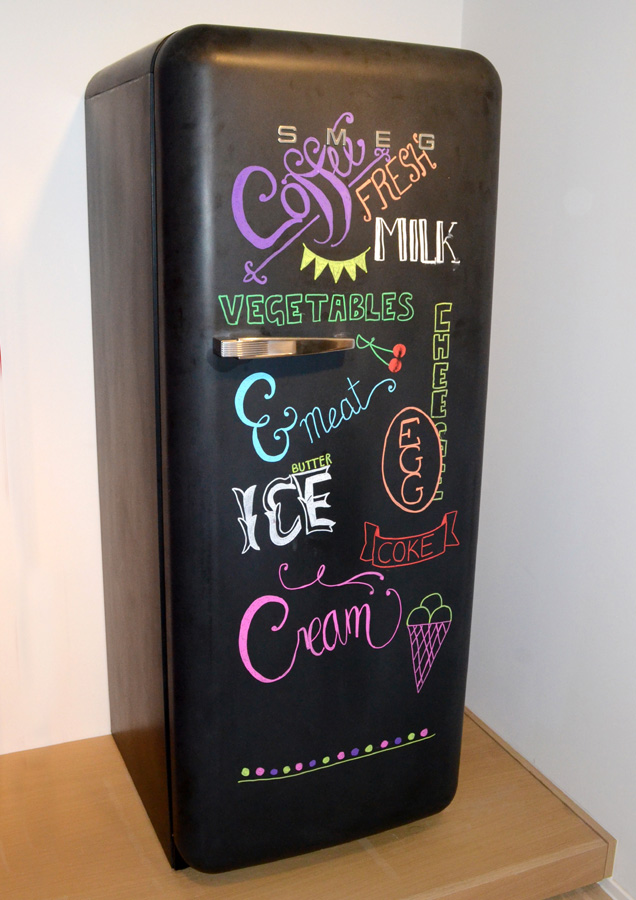 SMEG
Coffee
FRESH
MILK
VEGETABLES
& meat
EGG
BUTTER
ICE
COKE
Cream